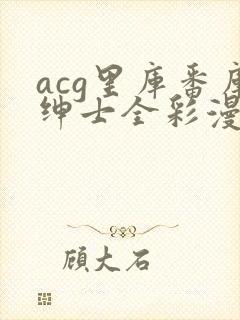 acg里库番库
绅士全彩漫
顾大石